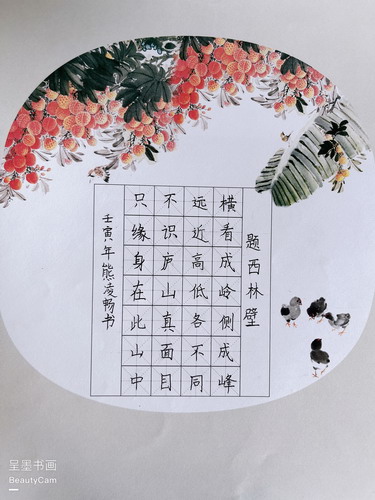 题西林壁
横看成岭侧成峰
远近高低各不同
不识庐山真面目
只缘身在此山中
壬寅年熊凌畅书
呈墨书画
BeautyCam